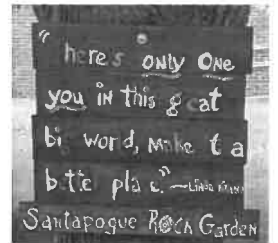 "here's only One
you in this g eat
big world, Make t a
bette place."
Santapogue Rock Garden